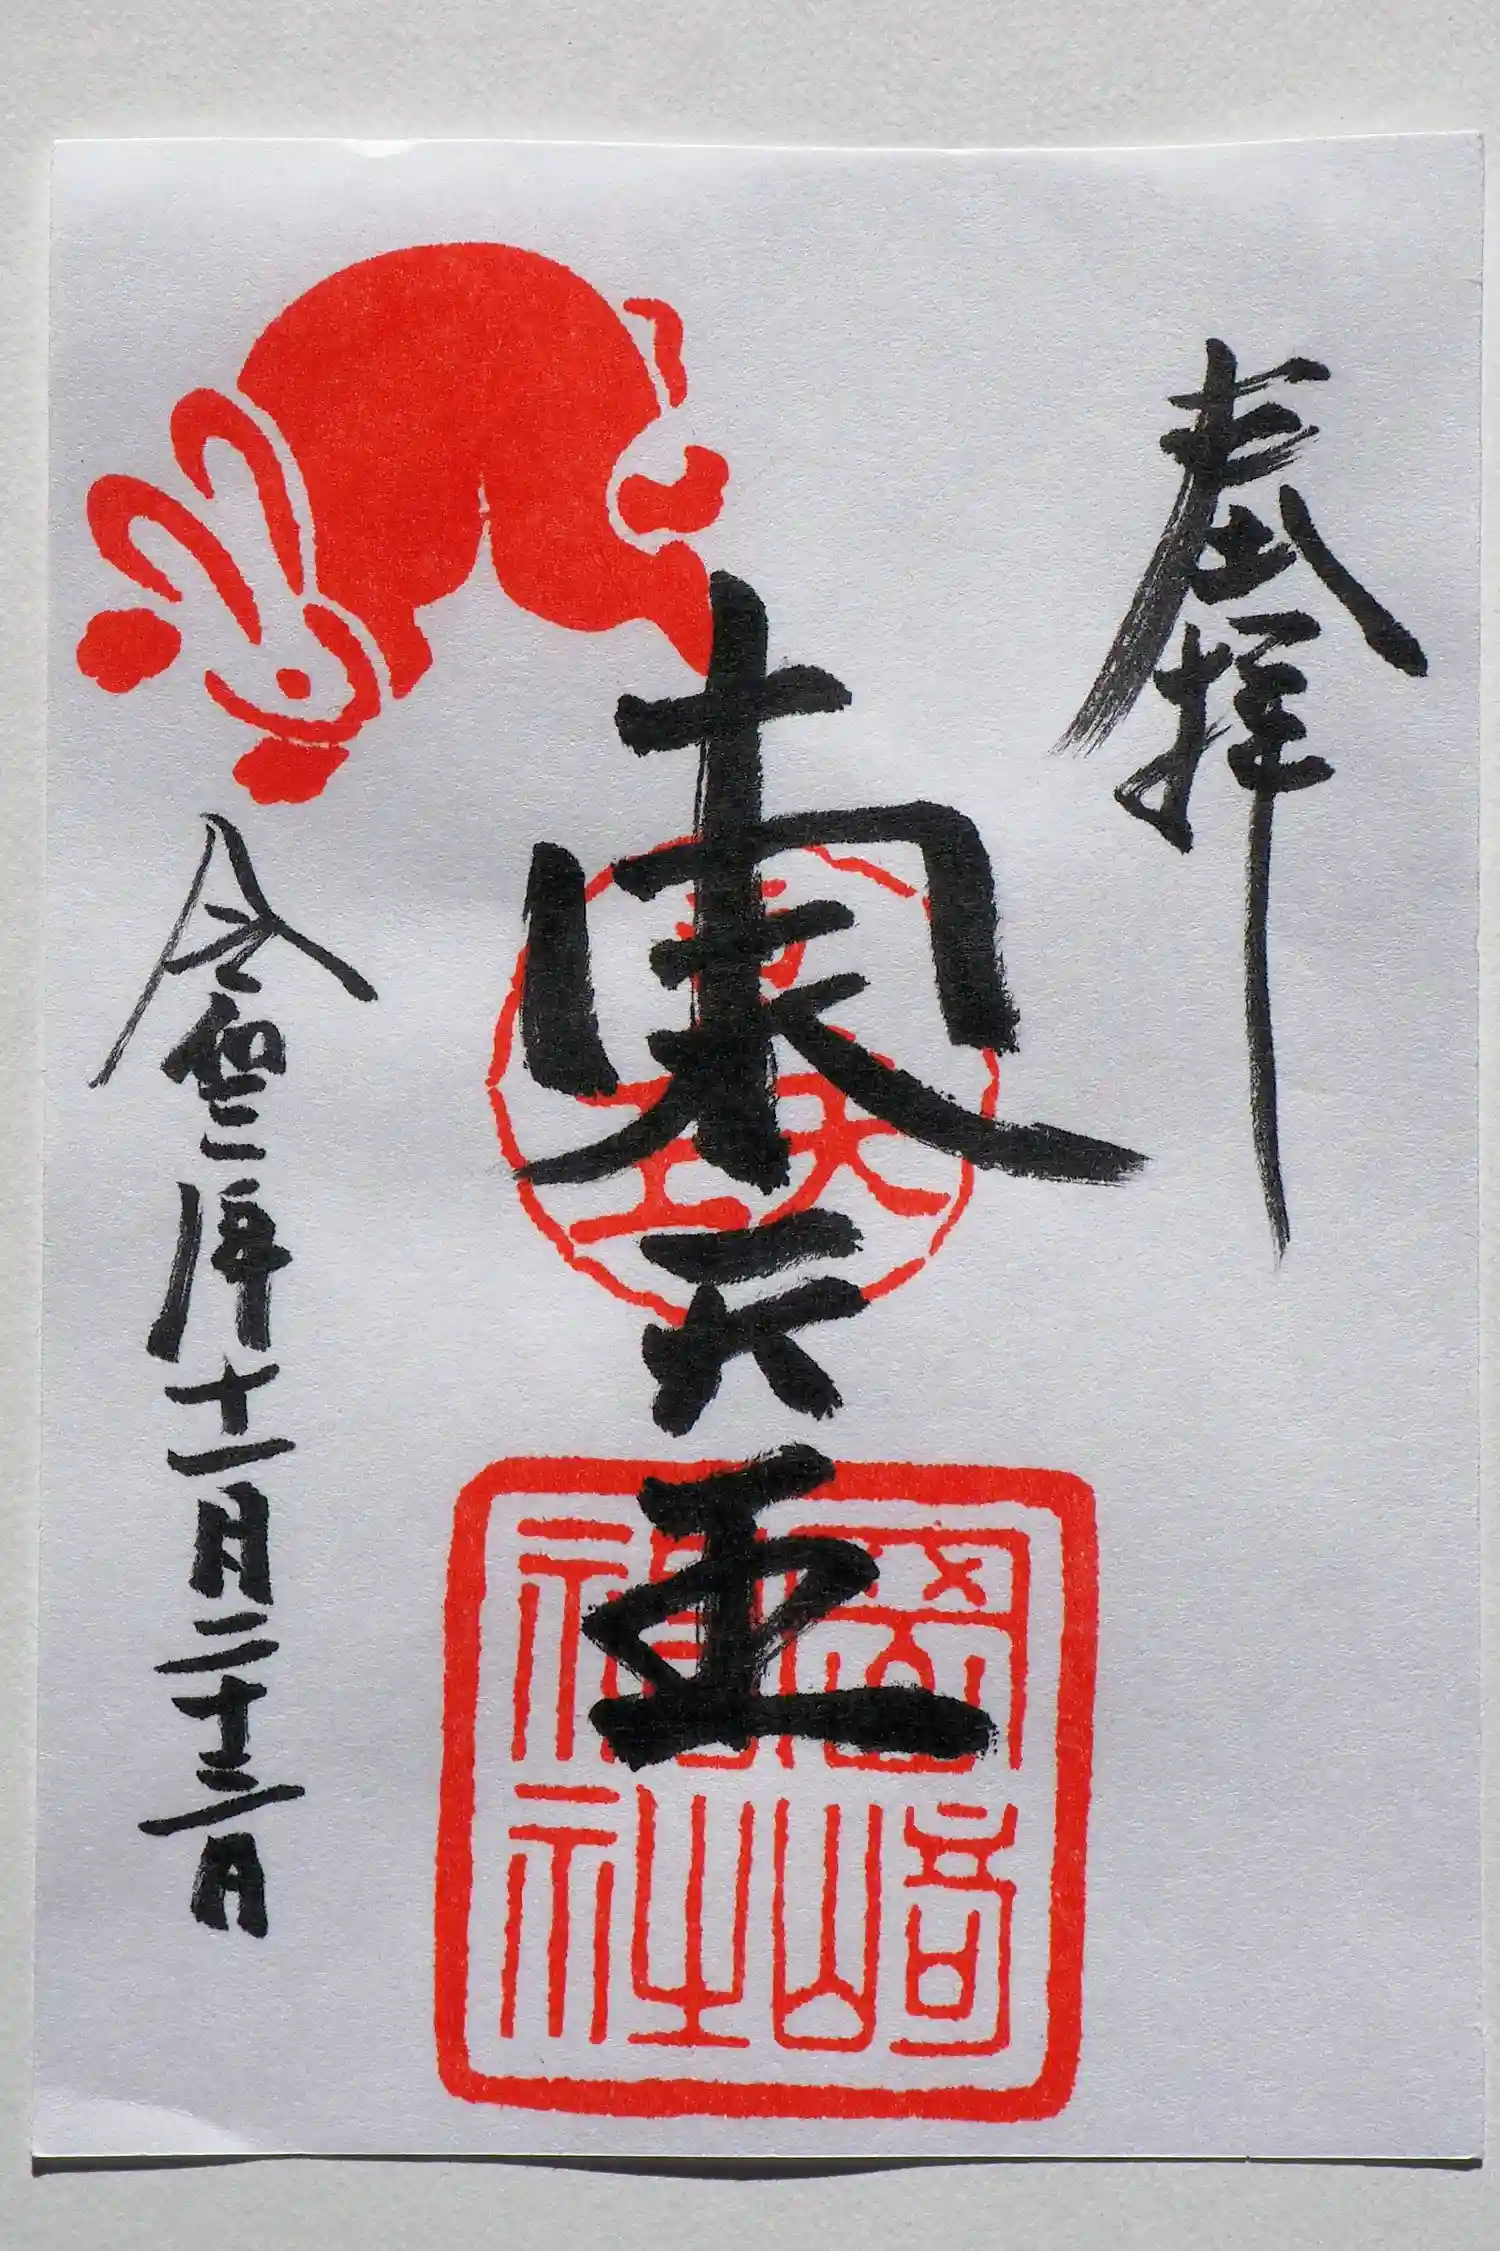 奉拝
東天王
令和三年十一月二十三日
東天王
岡崎
神社